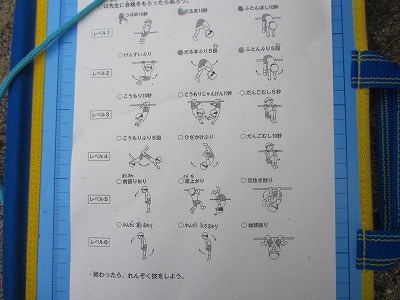 ○は先生に合格をもらったらぬろう。
つばめ10秒 だるま10秒 ふとんほし10秒
レベル1
○けんすいふり ○だるまふり5回 ○ふとんふり5回
レベル2
○こうもり10秒 ○こうもりじゃんけん10秒 ○だんごむし5秒
レベル3
○こうもりふり5回 ○ひざかけふり ○だんごむし10秒
レベル4
○前回りおり ○逆上がり ○足抜き回り
レベル5
○れんぞく前まわり ○れんぞくさかまわり ○地球回り
レベル6
・終わったら、れんぞく技をしよう。